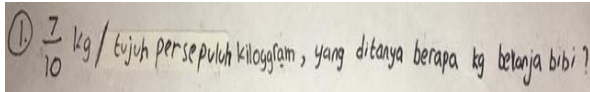 1. 7/10 kg / tujuh persepuluh kiloggram, yang ditanya berapa kg belanja bibi?